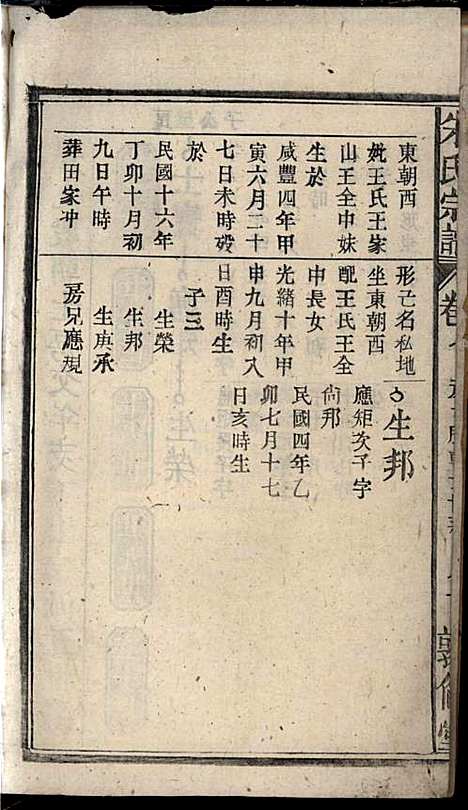 朱氏宗譜
卷
東朝西
妣王氏王家
山王全中妹
生於
咸豐四年甲
寅六月二十
七日未時歿
於
民國十六年
丁卯十月初
九日午時
葬田家冲
形亡名私地
坐東朝西
配王氏王全
中長女
光緒十年甲
申九月初八
日酉時生
子三
生榮
生邦
生庚承
房兄應規
生邦
應矩次子字
尙邦
民國四年乙
卯七月十七
日亥時生
敦倫堂